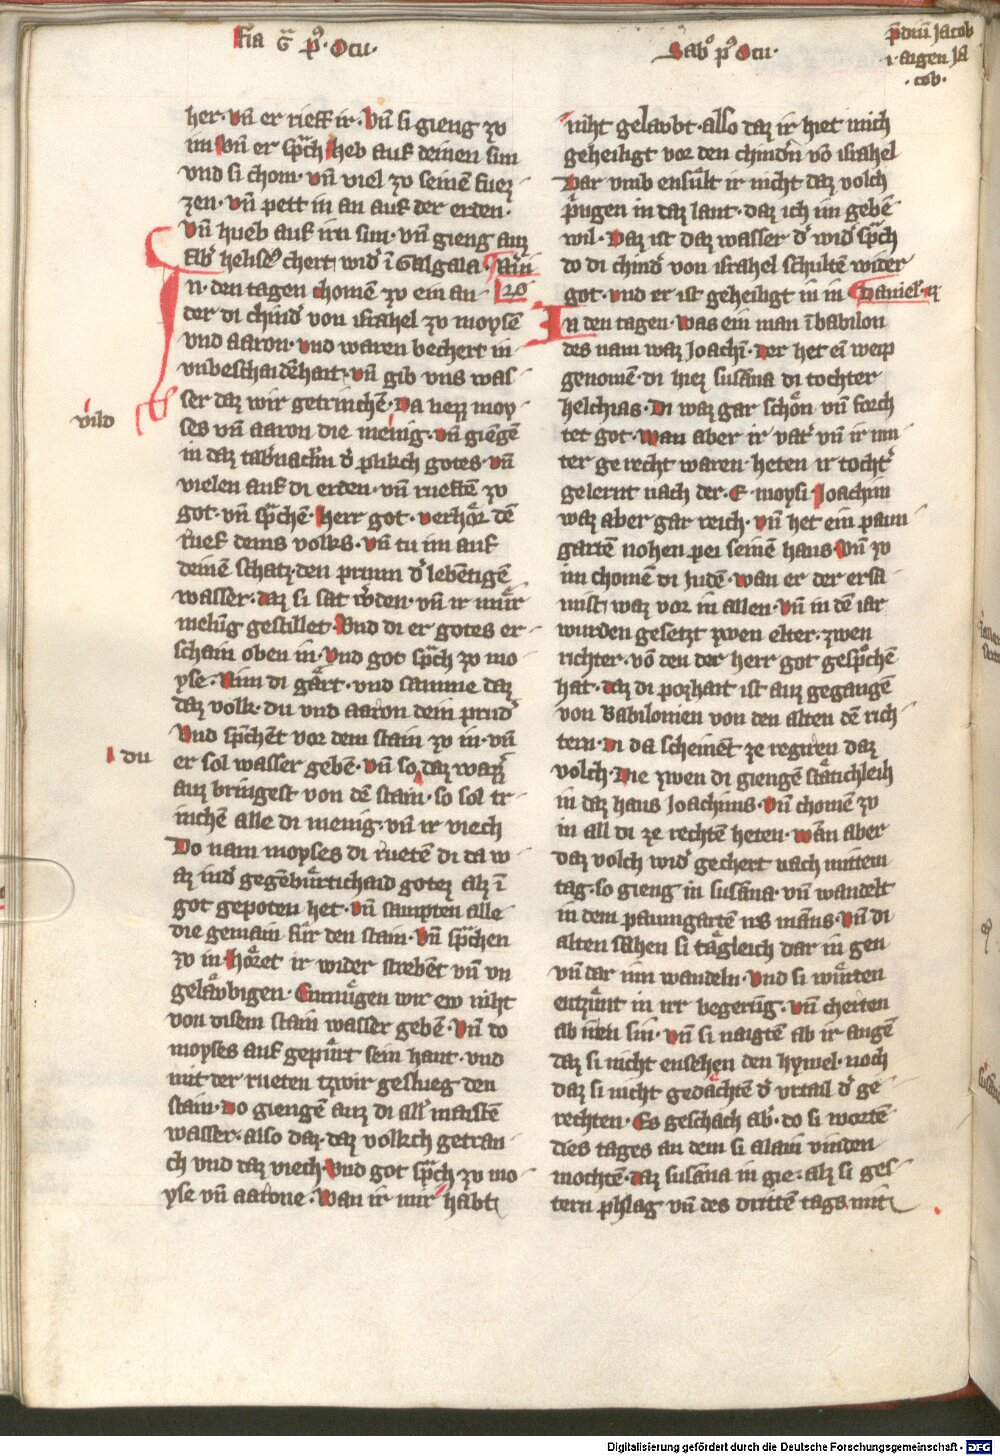 Fia G̃ p̊. Ocu.
Sabͦ pͦ Ocu.
p̄dium Jacob
i. aigen Ja
.cob.
her. vn̄ er rieff ir. Vn̄ si gieng zv
im Vn̄ er sp̄ch heb auf deinen sun
vnd si chom. vn̄ viel zv seinē fuez
zen. vn̄ pett in an auf der erden.
vn̄ hueb auf irn sun. vn̄ gieng auz
ab̾ heliseꝰ chert wid̾ ī Galgala.
n. den tagen chomen zv ein an
20
der di chind̾ von israhel zv moysē
vnd aaron. vnd waren bechert in
vnbeschaidēhait. vn̄ gib vns was
ser daz wir getrinchē. Da nerz moy
vild
ses vn̄ aaron die menig. vn̄ giengē
in daz tab̾nach̾m d̾ plikch gotes. vn̄
vielen auf di erden. vn̄ ruefften zv
got. vn̄ sp̄chē. Herr got. verhör dē
ruef deins volks. vn̄ tu im auf
deinē schatz. den prunn d̾ lebētigē
wasser. daz si sat w̾den. vn̄ ir mur
melūg gestillet. Vnd di er gotes er
schain oben in. vnd got sp̄ch zv mo
yse. Nim di gärt. vnd samme daz
daz volk. du vnd aaron dein prud̾
Vnd sp̄chēt vor dem stain zv in. vn̄
du
er sol wasser gebē. vn̄ so daz wazz̾
auz bringest von dē stain. so sol tr
inchē alle di menig. vn̄ ir viech
Do nam moyses di ruetē di da w
az in d̾ gegēbürtichaid gotez alz ī
got gepoten het. vn̄ sampten alle
die gemain für den stain. Vn̄ sp̄chen
zv in Höret ir wider strebēt vn̄ vn
geläubigen. Enmügen wir ew niht
von disem stain wasser gebē. Vn̄ do
moyses auf gepürt sein hant. vnd
mit der rueten tzwir geslueg den
stain. Do giengē auz di all̾ maistē
wasser. also daz. daz volkch getran
ch vnd daz viech. Vnd got sp̄ch zv mo
yse vn̄ aarone. Wan ir mir habt
niht gelaubt. also daz ir hiet mich
geheiligt vor den chindn̄ vō israhel
Dar vmb ensült ir nicht daz volch
p̄ngen in daz lant. daz ich im gebē
wil. Daz ist daz wasser d̾ wid̾ sp̄ch
do di chind̾ von israhel schultē wider
got. vnd er ist geheiligt in in Daniel̾
In den tagen. was ein man ī babilon
des nam waz Joachī. der het eī weip
genomē. di hiez susāna di tochter
helchias. Di waz gar schön vn̄ forch
tet got. Wan aber ir vat̾ vn̄ ir mu
ter gerecht waren. heten ir tocht̾
gelernt nach der. E. moysi Joachim
waz aber gar reich. vn̄ het ein paum
gartē nohen pei seinē haus Vn̄ zv
im chomē di Judē. Wan er der ersa
mist waz vor in allen. Vn̄ in dē iar
wurden gesetzt zwen elter. zwen
richter. vō den der herr got gesp̄chē
hat. daz di pozhait ist auz gegangē
von Babilonien von den alten dē rich
tern. Di da scheinēt ze regiren daz
volch. Die zwen di giengē stätichleih
in daz haus Joachims. Vn̄ chomē zv
in all di ze rechtē heten. Wan̄ aber
daz volch wid̾ gechert nach mittem
tag. so gieng in susāna. vn̄ wandelt
in dem paumgartē irs māns. Vn̄ di
alten sahen si tägleich dar in gen
vn̄ dar inn wandeln. Vnd si würten
entzünt in irr begerūg. Vn̄ cherten
ab iren sin. Vn̄ si naigtē ab ir augē
daz si nicht ensehen den hymel. noch
daz si nicht gedächtē d̾ vrtail d̾ ge
rechten. Es geschach ab̾. do si wortē
dies tages an dem si alain vinden
mochtē. daz susāna in gie. alz si ges
tern phlag vn̄ des dritten tags. mit
Digitalisierung gefördert durch die Deutsche Forschungsgemeinschaft - DFG